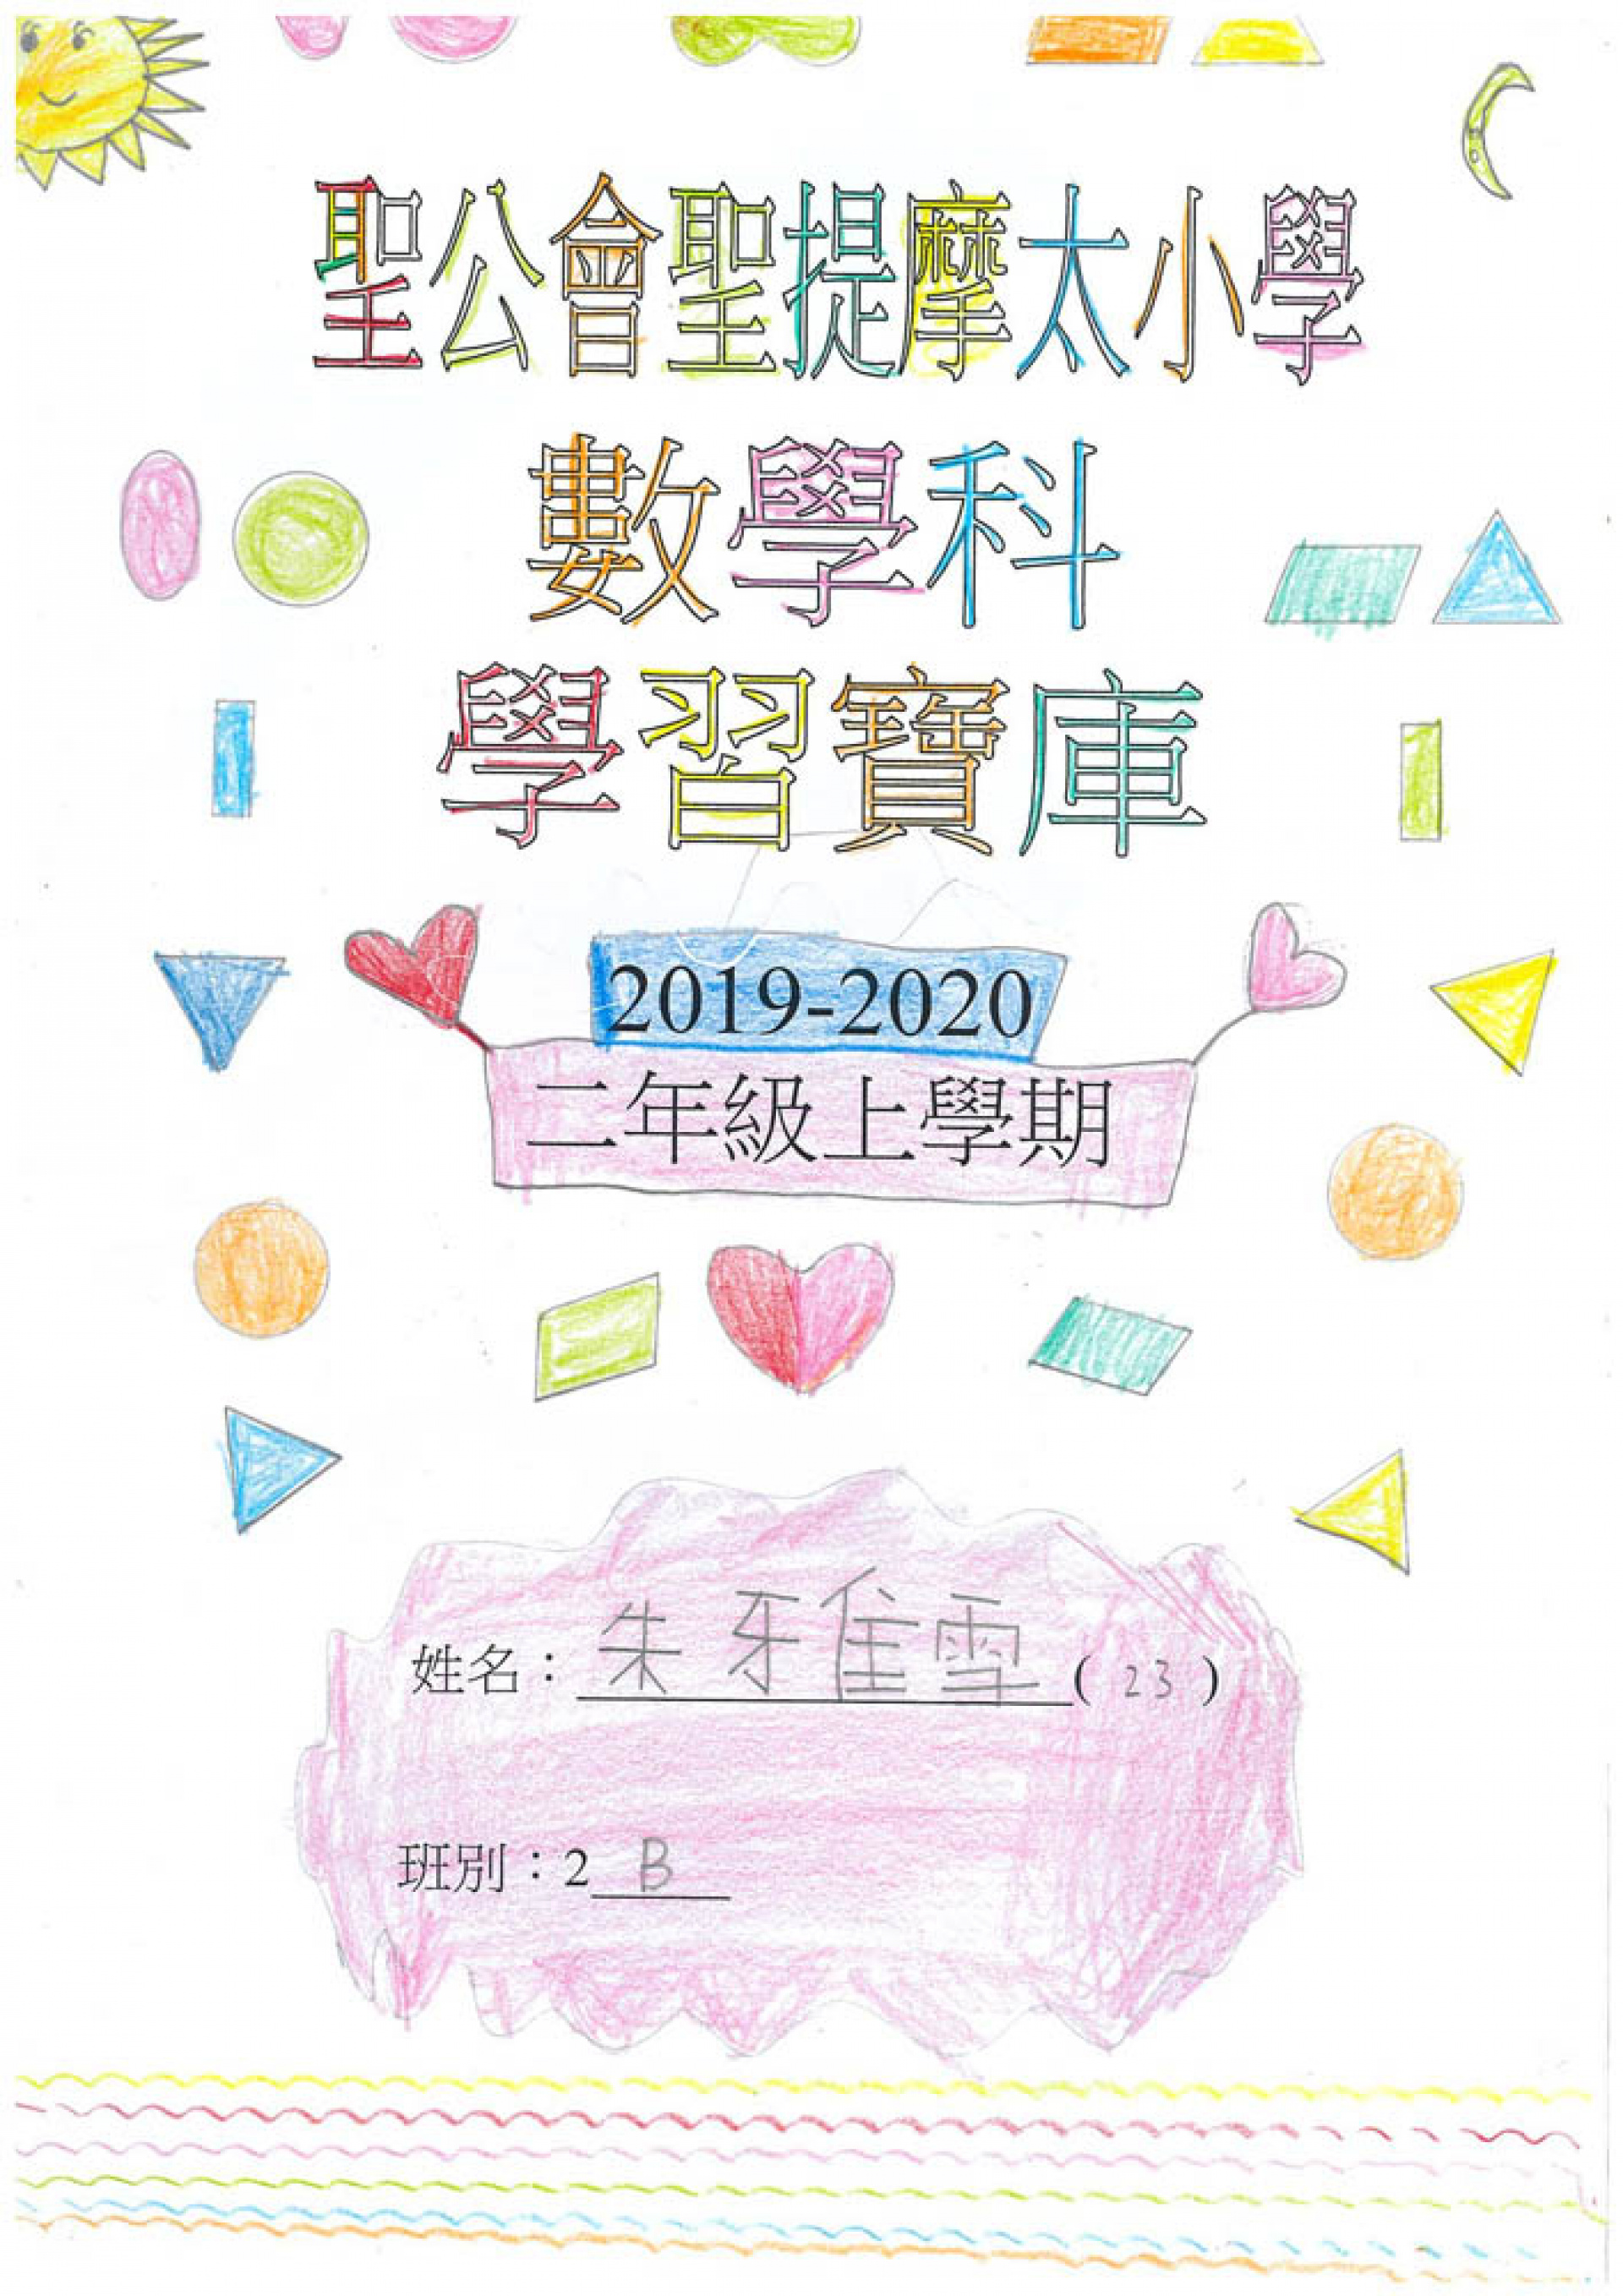 聖公會聖提摩太小學
數學科
學習寶庫
2019-2020
二年級上學期
姓名：朱雅雪(23)
班別：2B